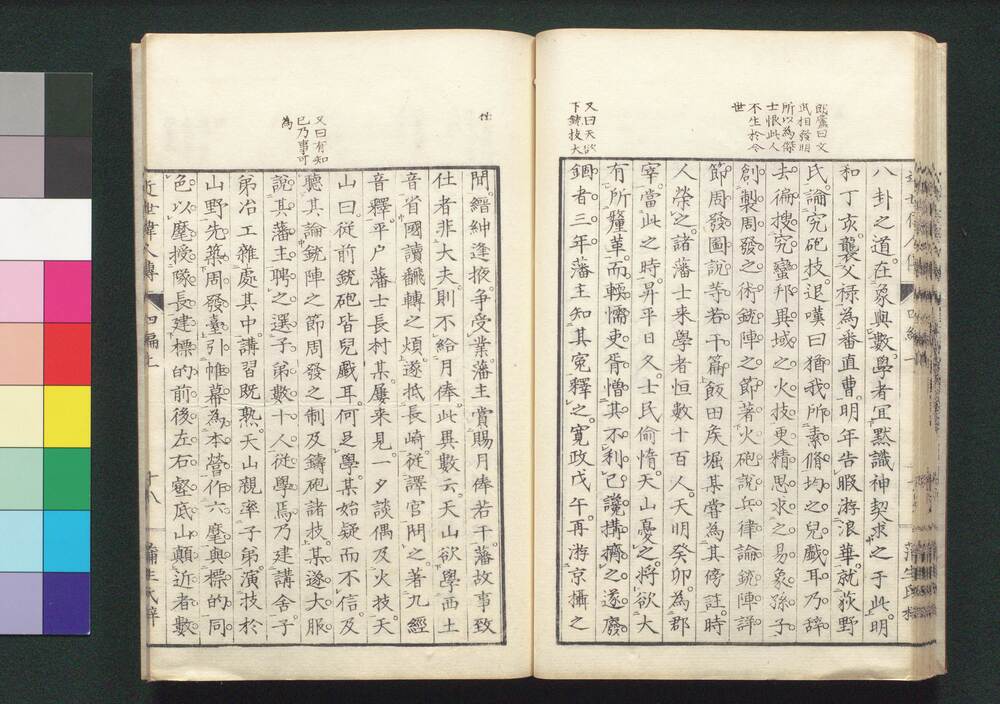 八卦之道。在象與數。學者宜默識神契求之于此。明
和丁亥。襲父祿為番直曹。明年告暇游浪華。就荻野
氏。論究砲技。退嘆曰。猶我所素脩。均之兒戲耳。乃辞
去。徧搜究蠻邦異域之火技。更精思求之易象孫子
創製周發之術。銃陣之節。著火砲說。兵律論。銃陣詳
節。周發圖說等若干篇。飯田矦堀某嘗為其傍註。時
人榮之。諸藩士来學者。恒數十百人。天明癸卯。為郡
宰。當此之時。昇平日久。士氏偷惰。天山憂之。將欲大
有所釐革。而輭懦吏胥憎其不利己。讒搆擠之。遂廢
錮者三年。藩主知其寃釋之。寬政戊午。再游京攝之
即廬曰文
武相發明
所以為傑
士恨此人
不生於今
世
又曰天欲
下錬技大
任
間。縉紳逢掖。争受業。藩主賞賜月俸若干。藩故事。致
仕者非大夫。則不給月俸。此異數云。天山欲學西土
音。省國讀飜轉之煩。遂抵長崎。從譯官問之。著九經
音釋。平戶藩士長村某。屢来見。一夕談偶及火技。天
山曰。從前銃砲皆兒戲耳。何足學。某始疑而不信。及
聽其論銃陣之節。周發之制。及鑄砲諸技。某遂大服
說其藩主聘之。選子弟數十人從學焉。乃建講舍。子
弟冶工雜處其中。講習既熟。天山親率子弟。演技於
山野。先築周發臺。引帷幕為本營。作六麾與標的同
色。以麾授隊長。建標的前後左右。壑底山顛。近者數
又曰有知
己乃事可
為
近世偉人傳
四編上
十八
蒲生氏梓